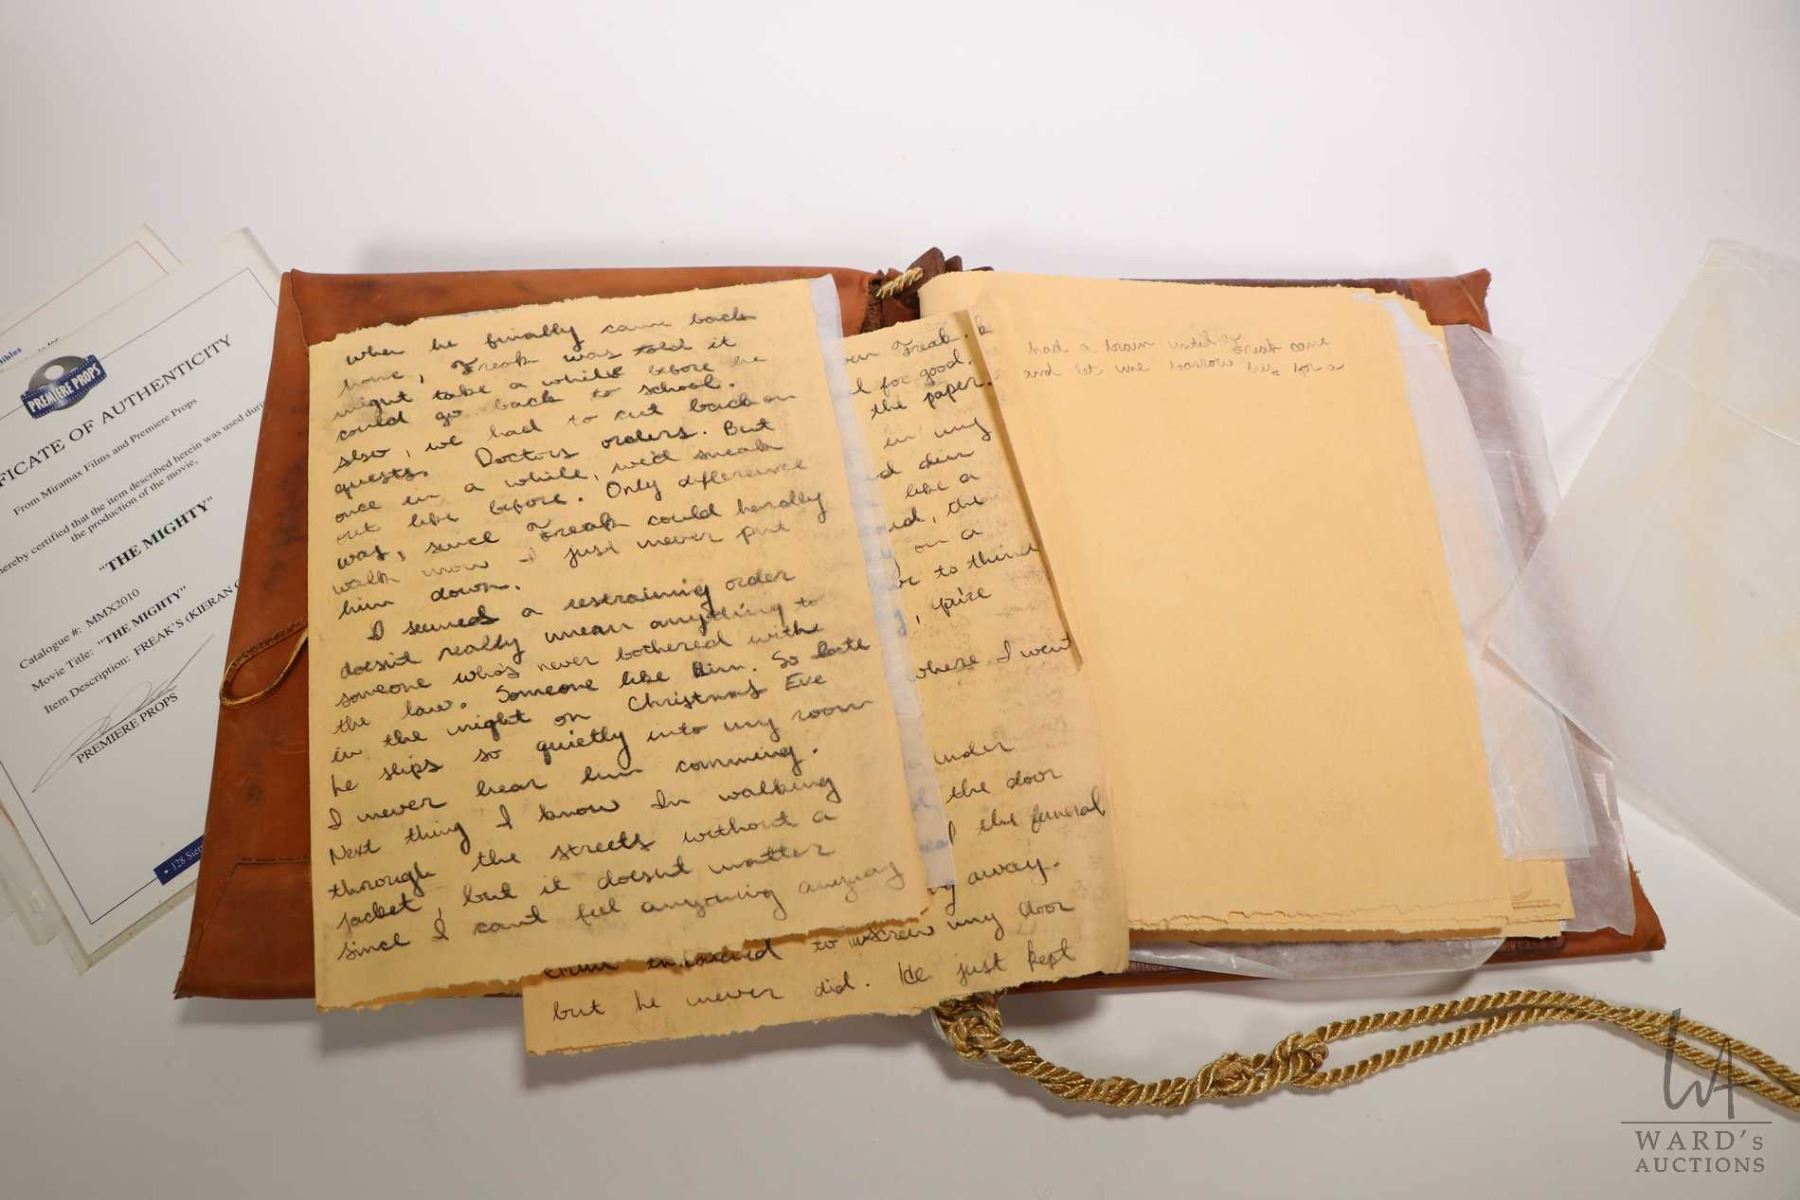 when he finally came back
home, Freak was told it
might take a while before he
could go back to school.
also, we had to cut back on
quests. Doctors orders. But
once in a while, we'd sneak
out like before. Only difference
was, since Freak could hardly
walk now I just never put
him down.
I seemed a restraining order
doesn't really mean anything to
someone who's never bothered with
the law. Someone like him. So late
in the night on Christmas Eve
he slips so quietly into my room
I never hear him comming.
Next thing I know Im walking
through the streets without a
jacket, but it doesnt matter
since I cant feel anything anyway
Freak.
l for good.
the paper.
in my
like a
the
on a
to think
where I went
under
the door
the funeral
away.
to unscrew my door
but he never did. He just kept
had a brain until Freak came
and let me borrow his for a
PREMIERE PROPS
FICATE OF AUTHENTICITY
From Miramax Films and Premiere Props
ereby certified that the item described herein was used duri
the production of the movie,
"THE MIGHTY"
Catalogue #: MMX2010
Movie Title: "THE MIGHTY"
Item Description: FREAK'S (KIERAN C
PREMIERE PROPS
WARD's
AUCTIONS